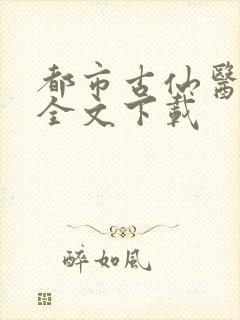 都市古仙醫
全文下載
醉如風